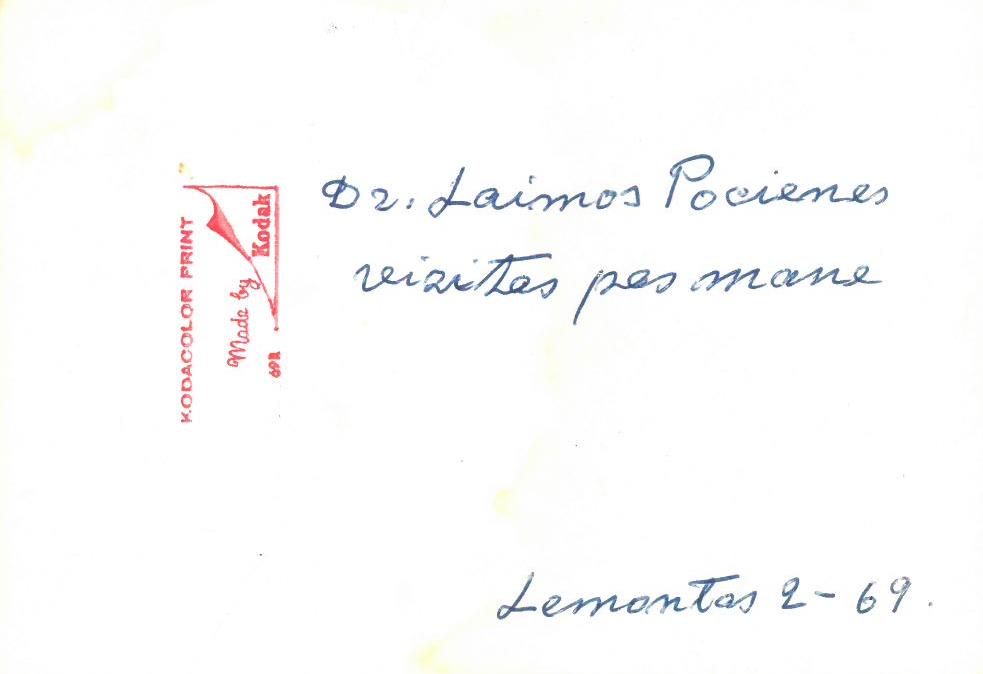 KODACOLOR PRINT
Made by
Kodak
69R
Dr. Laimos Pocienes
vizitas pas mane
Lemontas 2-69.